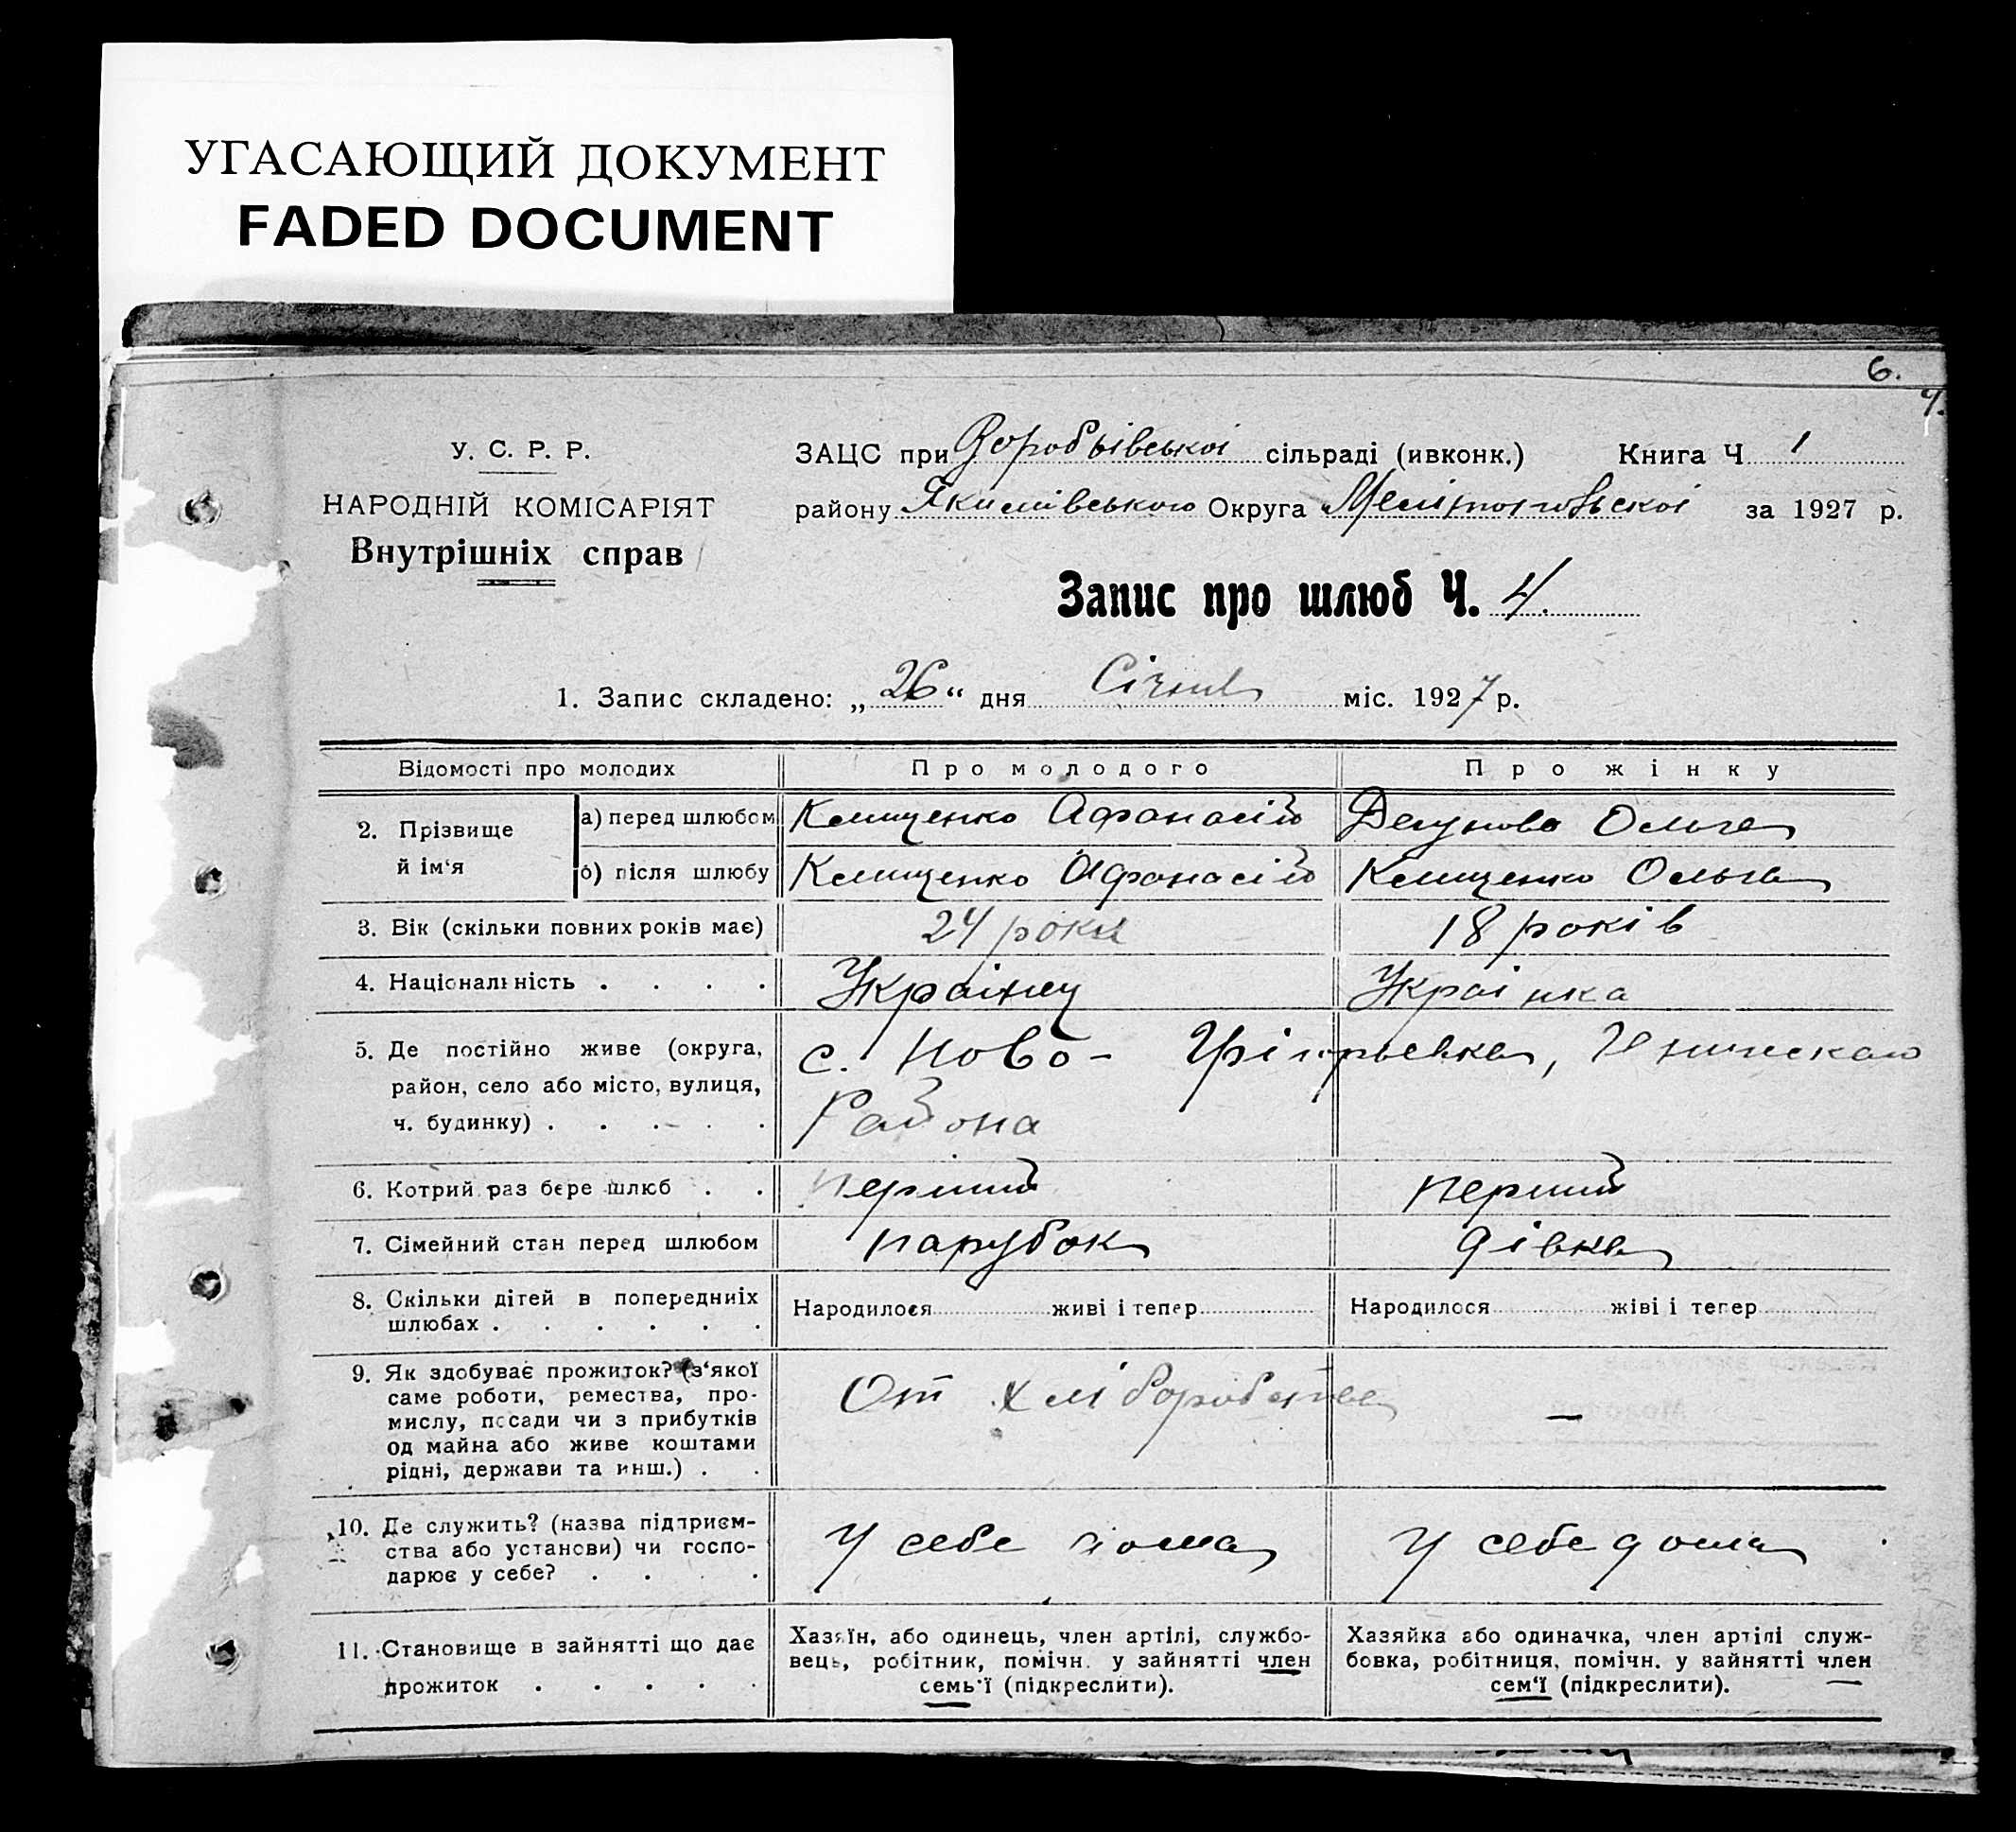 УГАСАЮЩИЙ ДОКУМЕНТ
FADED DOCUMENT
6.
У. С. Р. Р.
НАРОДНІЙ КОМІСАРІЯТ
Внутрішніх справ
ЗАЦС при Воробьівськоі сільраді (ивконк.) Книга Ч 1
району Якимівського Округа Мелітопольскоі за 1927 р.
Запис про шлюб Ч. 4.
1. Запис складено: „26“ дня Січня міс. 1927 р.
Відомості про молодих Про молодого Про жінку
2. Прізвище й ім‘я
а) перед шлюбом Клищенко Афанасій Дегунова Ольга
б) після шлюбу Клищенко Афанасій Клищенко Ольга
3. Вік (скільки повних років має) 24 роки 18 років
4. Національність . . . . Украінец Украінка
5. Де постійно живе (округа, с. Ново-Грігорьевка, Геническаго
район, село або місто, вулиця, Района
ч. будинку) . . . . .
6. Котрий раз бере шлюб . . перший перший
7. Сімейний стан перед шлюбом парубок дівка
8. Скільки дітей в попередниіх Народилося живі і тепер Народилося жіві і тепер
шлюбах . . . . . .
9. Як здобуває прожиток? (з‘якої От хліборобства —
саме роботи, ремества, про-
мислу, посади чи з прибутків
од майна або живе коштами
рідні, держави та инш.) . .
10. Де служить? (назва підприєм- У себе дома У себе дома
ства або установи) чи госпо-
дарює у себе? . . . .
11. Становище в зайнятті що дає
прожиток . . . . .
Хазяїн, або одинець, член артілі, службо-
вець, робітник, помічн. у зайнятті член
семь‘ї (підкреслити).
Хазяйка або одиначка, член артілі служ-
бовка, робітниця, помічн. у зайнятті член
сем‘ї (підкреслити).